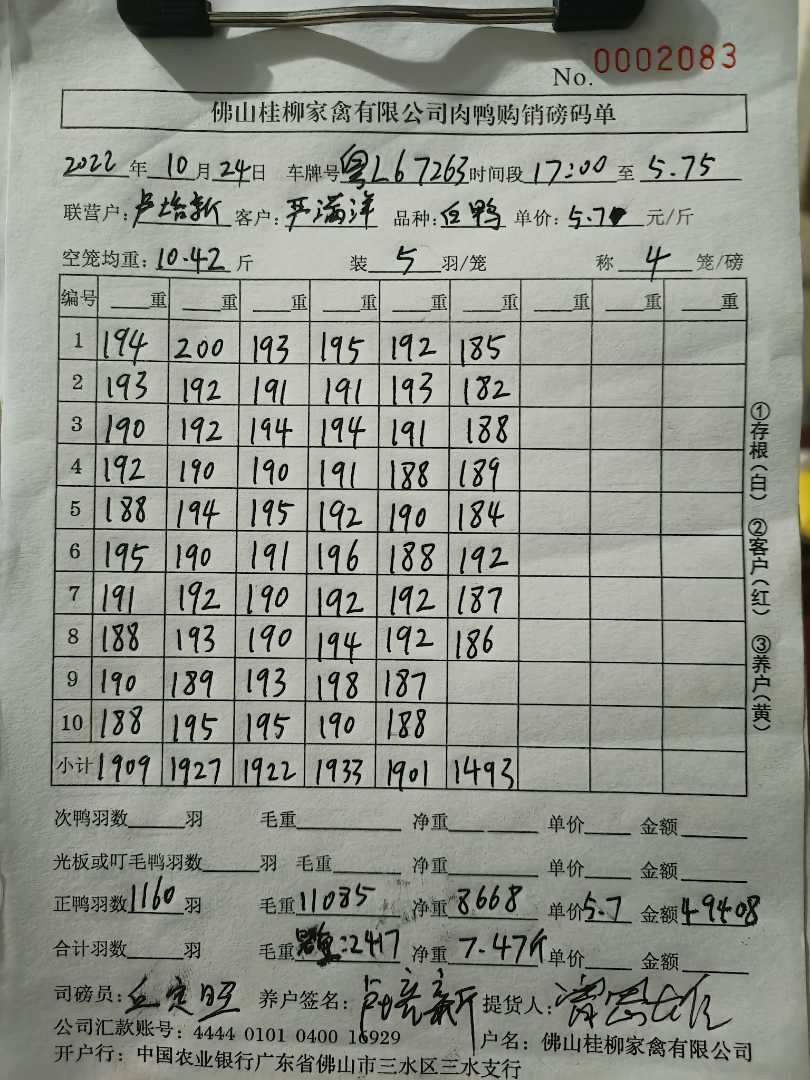 No. 0002083
佛山桂柳家禽有限公司肉鸭购销磅码单
2022 年 10 月 24 日 车牌号 粤L67263 时间段 17:00 至 5.75
联营户: 卢培新 客户: 严满洋 品种: 白鸭 单价: 5.7 元/斤
空笼均重: 10.42 斤 装 5 羽/笼 称 4 笼/磅
编号 重 重 重 重 重 重 重 重 重
1 194 200 193 195 192 185
2 193 192 191 191 193 182
3 190 192 194 194 191 188
4 192 190 190 191 188 189
5 188 194 195 192 190 184
6 195 190 191 196 188 192
7 191 192 190 192 192 187
8 188 193 190 194 192 186
9 190 189 193 198 187
10 188 195 195 190 188
小计 1909 1927 1922 1933 1901 1493
①存根(白) ②客户(红) ③养户(黄)
次鸭羽数 羽 毛重 净重 单价 金额
光板或叮毛鸭羽数 羽 毛重 净重 单价 金额
正鸭羽数 1160 羽 毛重 11085 净重 8668 单价 5.7 金额 49408
合计羽数 羽 毛重 :2417 净重 7.47斤 单价 金额
司磅员: 养户签名: 卢培新 提货人:
公司汇款账号: 4444 0101 0400 16929 户名: 佛山桂柳家禽有限公司
开户行: 中国农业银行广东省佛山市三水区三水支行